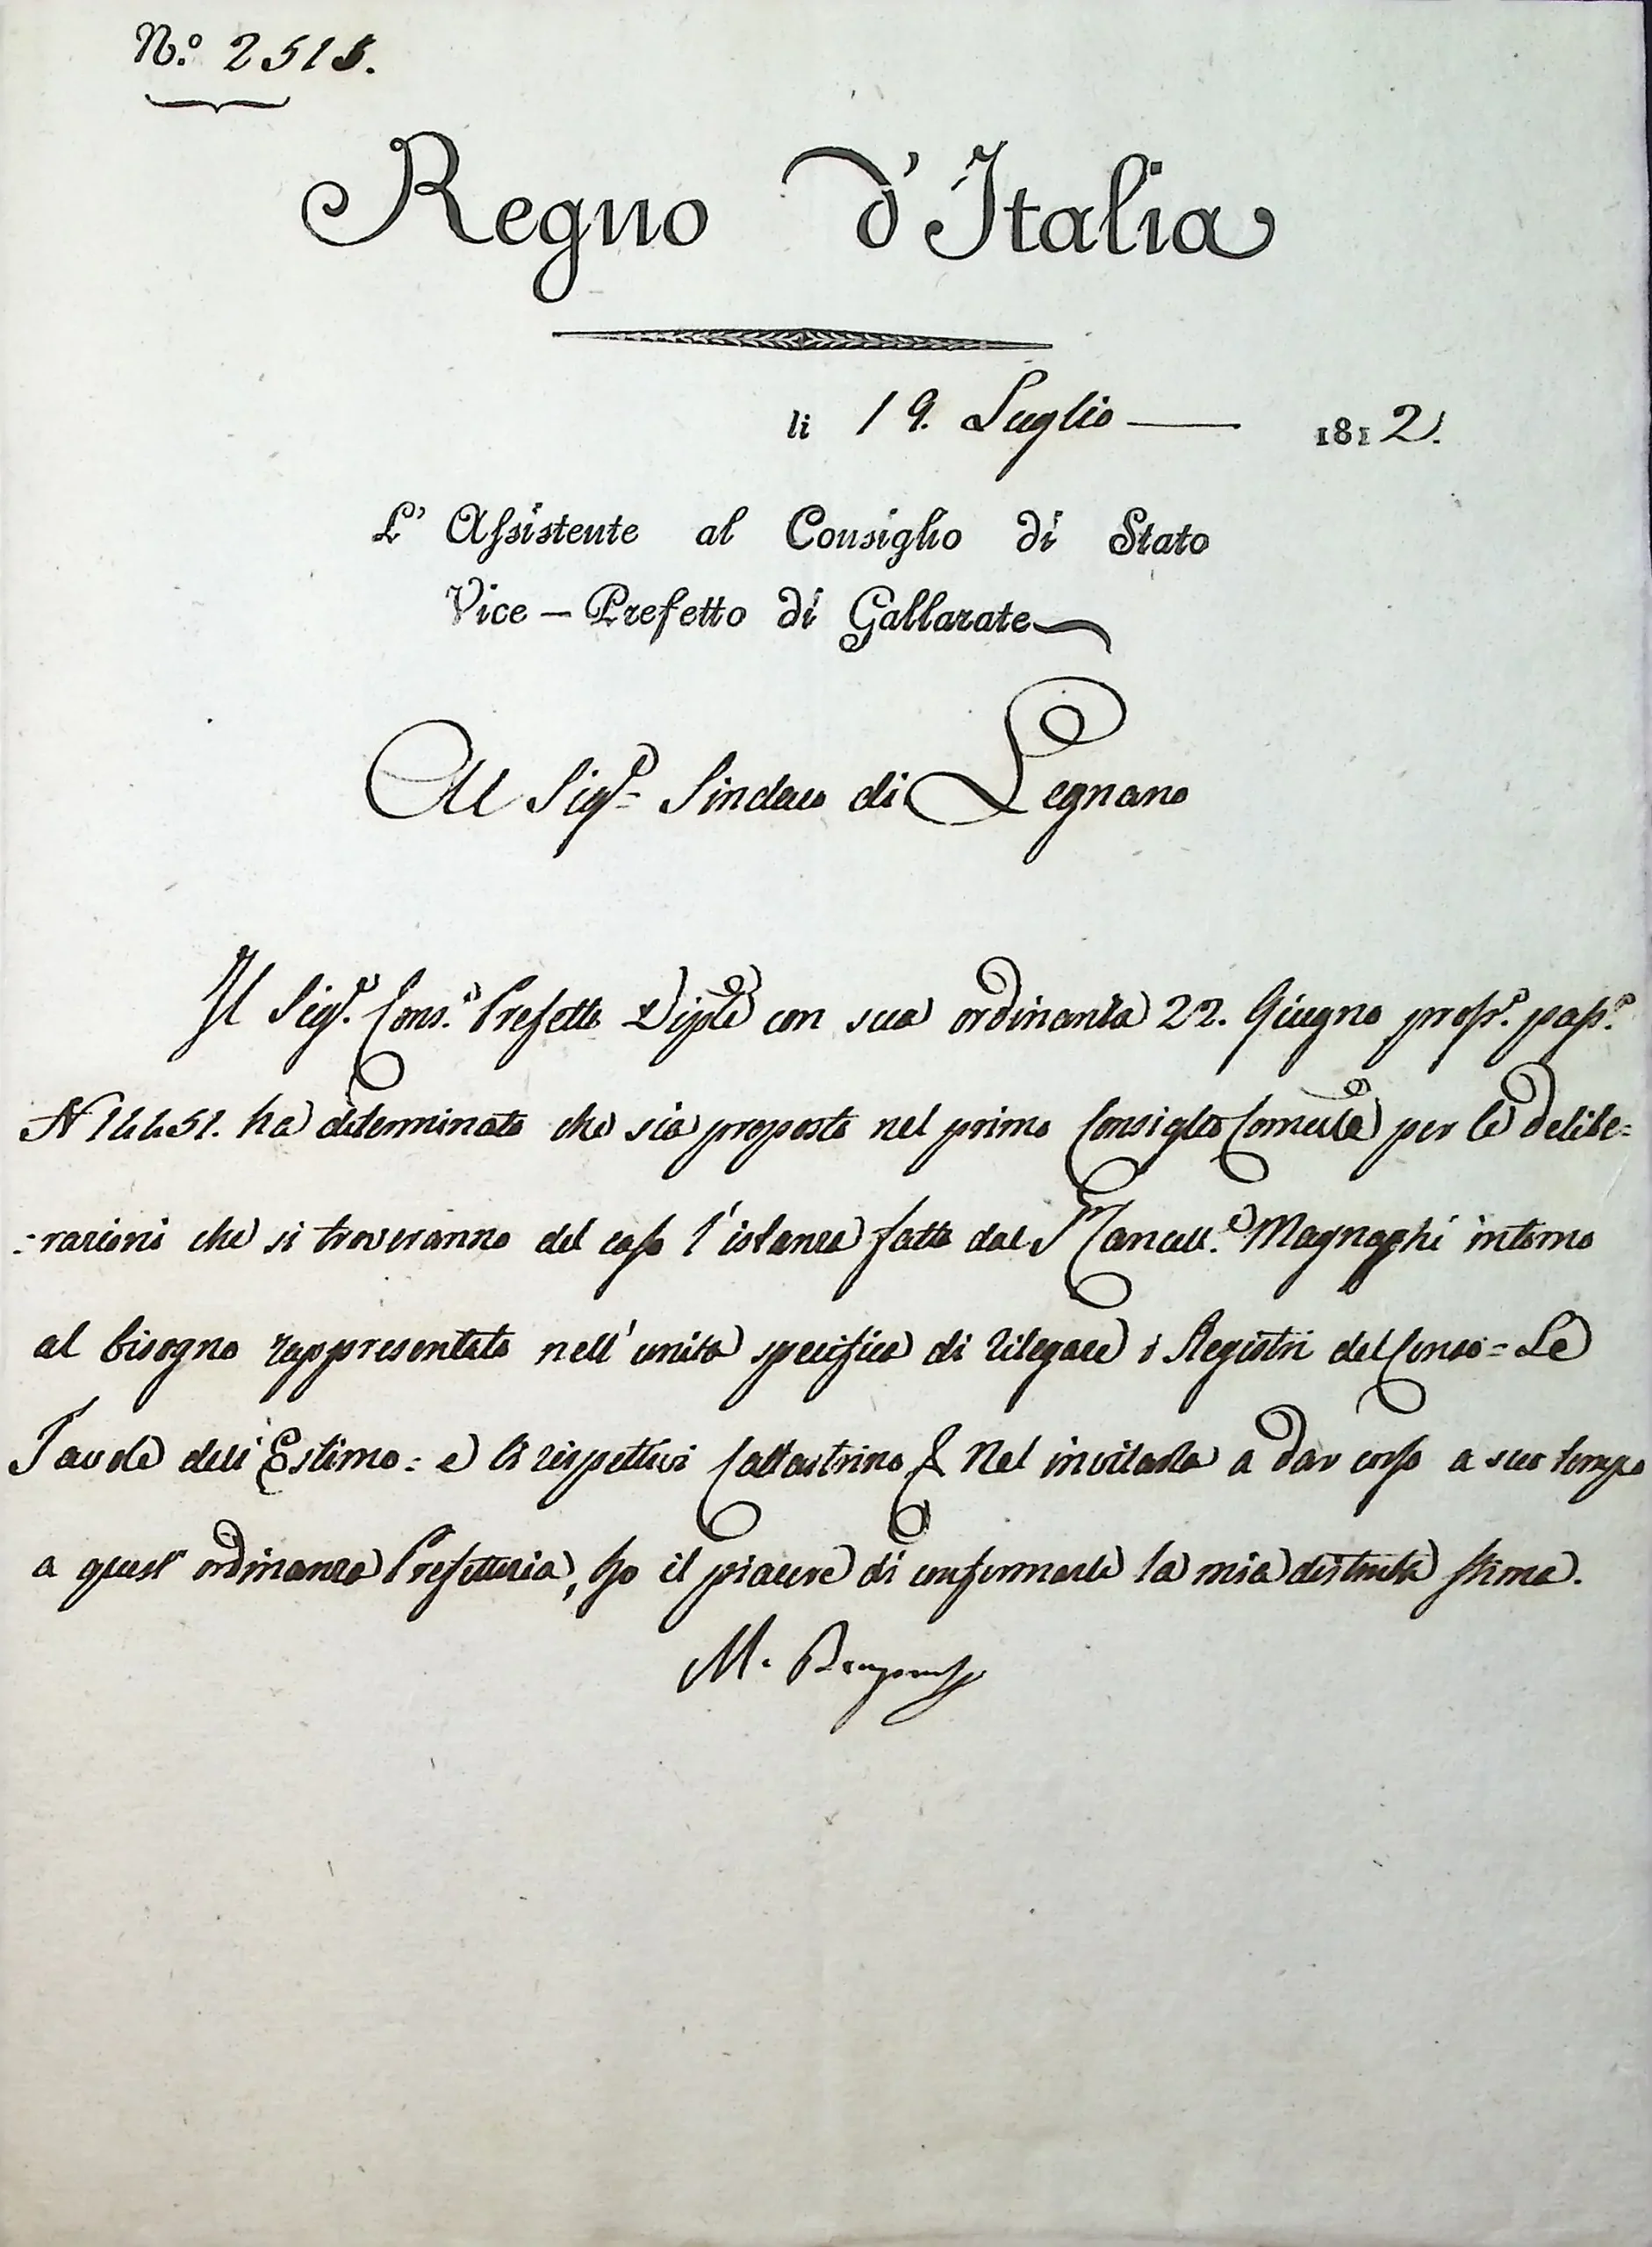 N.º 2515.
Regno d'Italia
li 19. Luglio 1812.
L' Assistente al Consiglio di Stato
Vice - Prefetto di Gallarate
Al Sigr. Sindaco di Legnano
Il Sigr. Cons.e Prefetto Diple con sua ordinanza 22. Giugno pross.o pass.o
N ha determinato che sia proposto nel primo Consiglio Comule per le delibe=
=razioni che si troveranno del caso l'istanza fatta dal Sr Cancell.e Magnaghi intorno
al bisogno rappresentato nell'unita specifica di rilegare i Registri del Censo = Le
Tavole dell' Estimo = e li rispettivi Cattastrino & Nel invitarla a dar corso a suo tempo
a quest' ordinanza Prefettizia, ho il piacere di confermarle la mia distinta stima.
M.